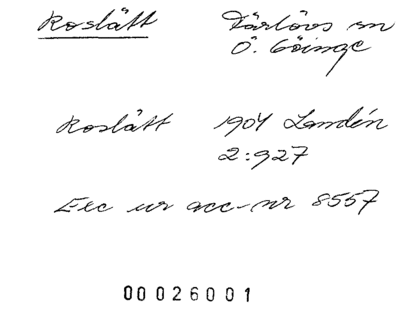 Roslätt Färlövs sn
Ö. Göinge
Roslätt 1904 Landén
2:927
Exc ur acc-nr 8557
00026001